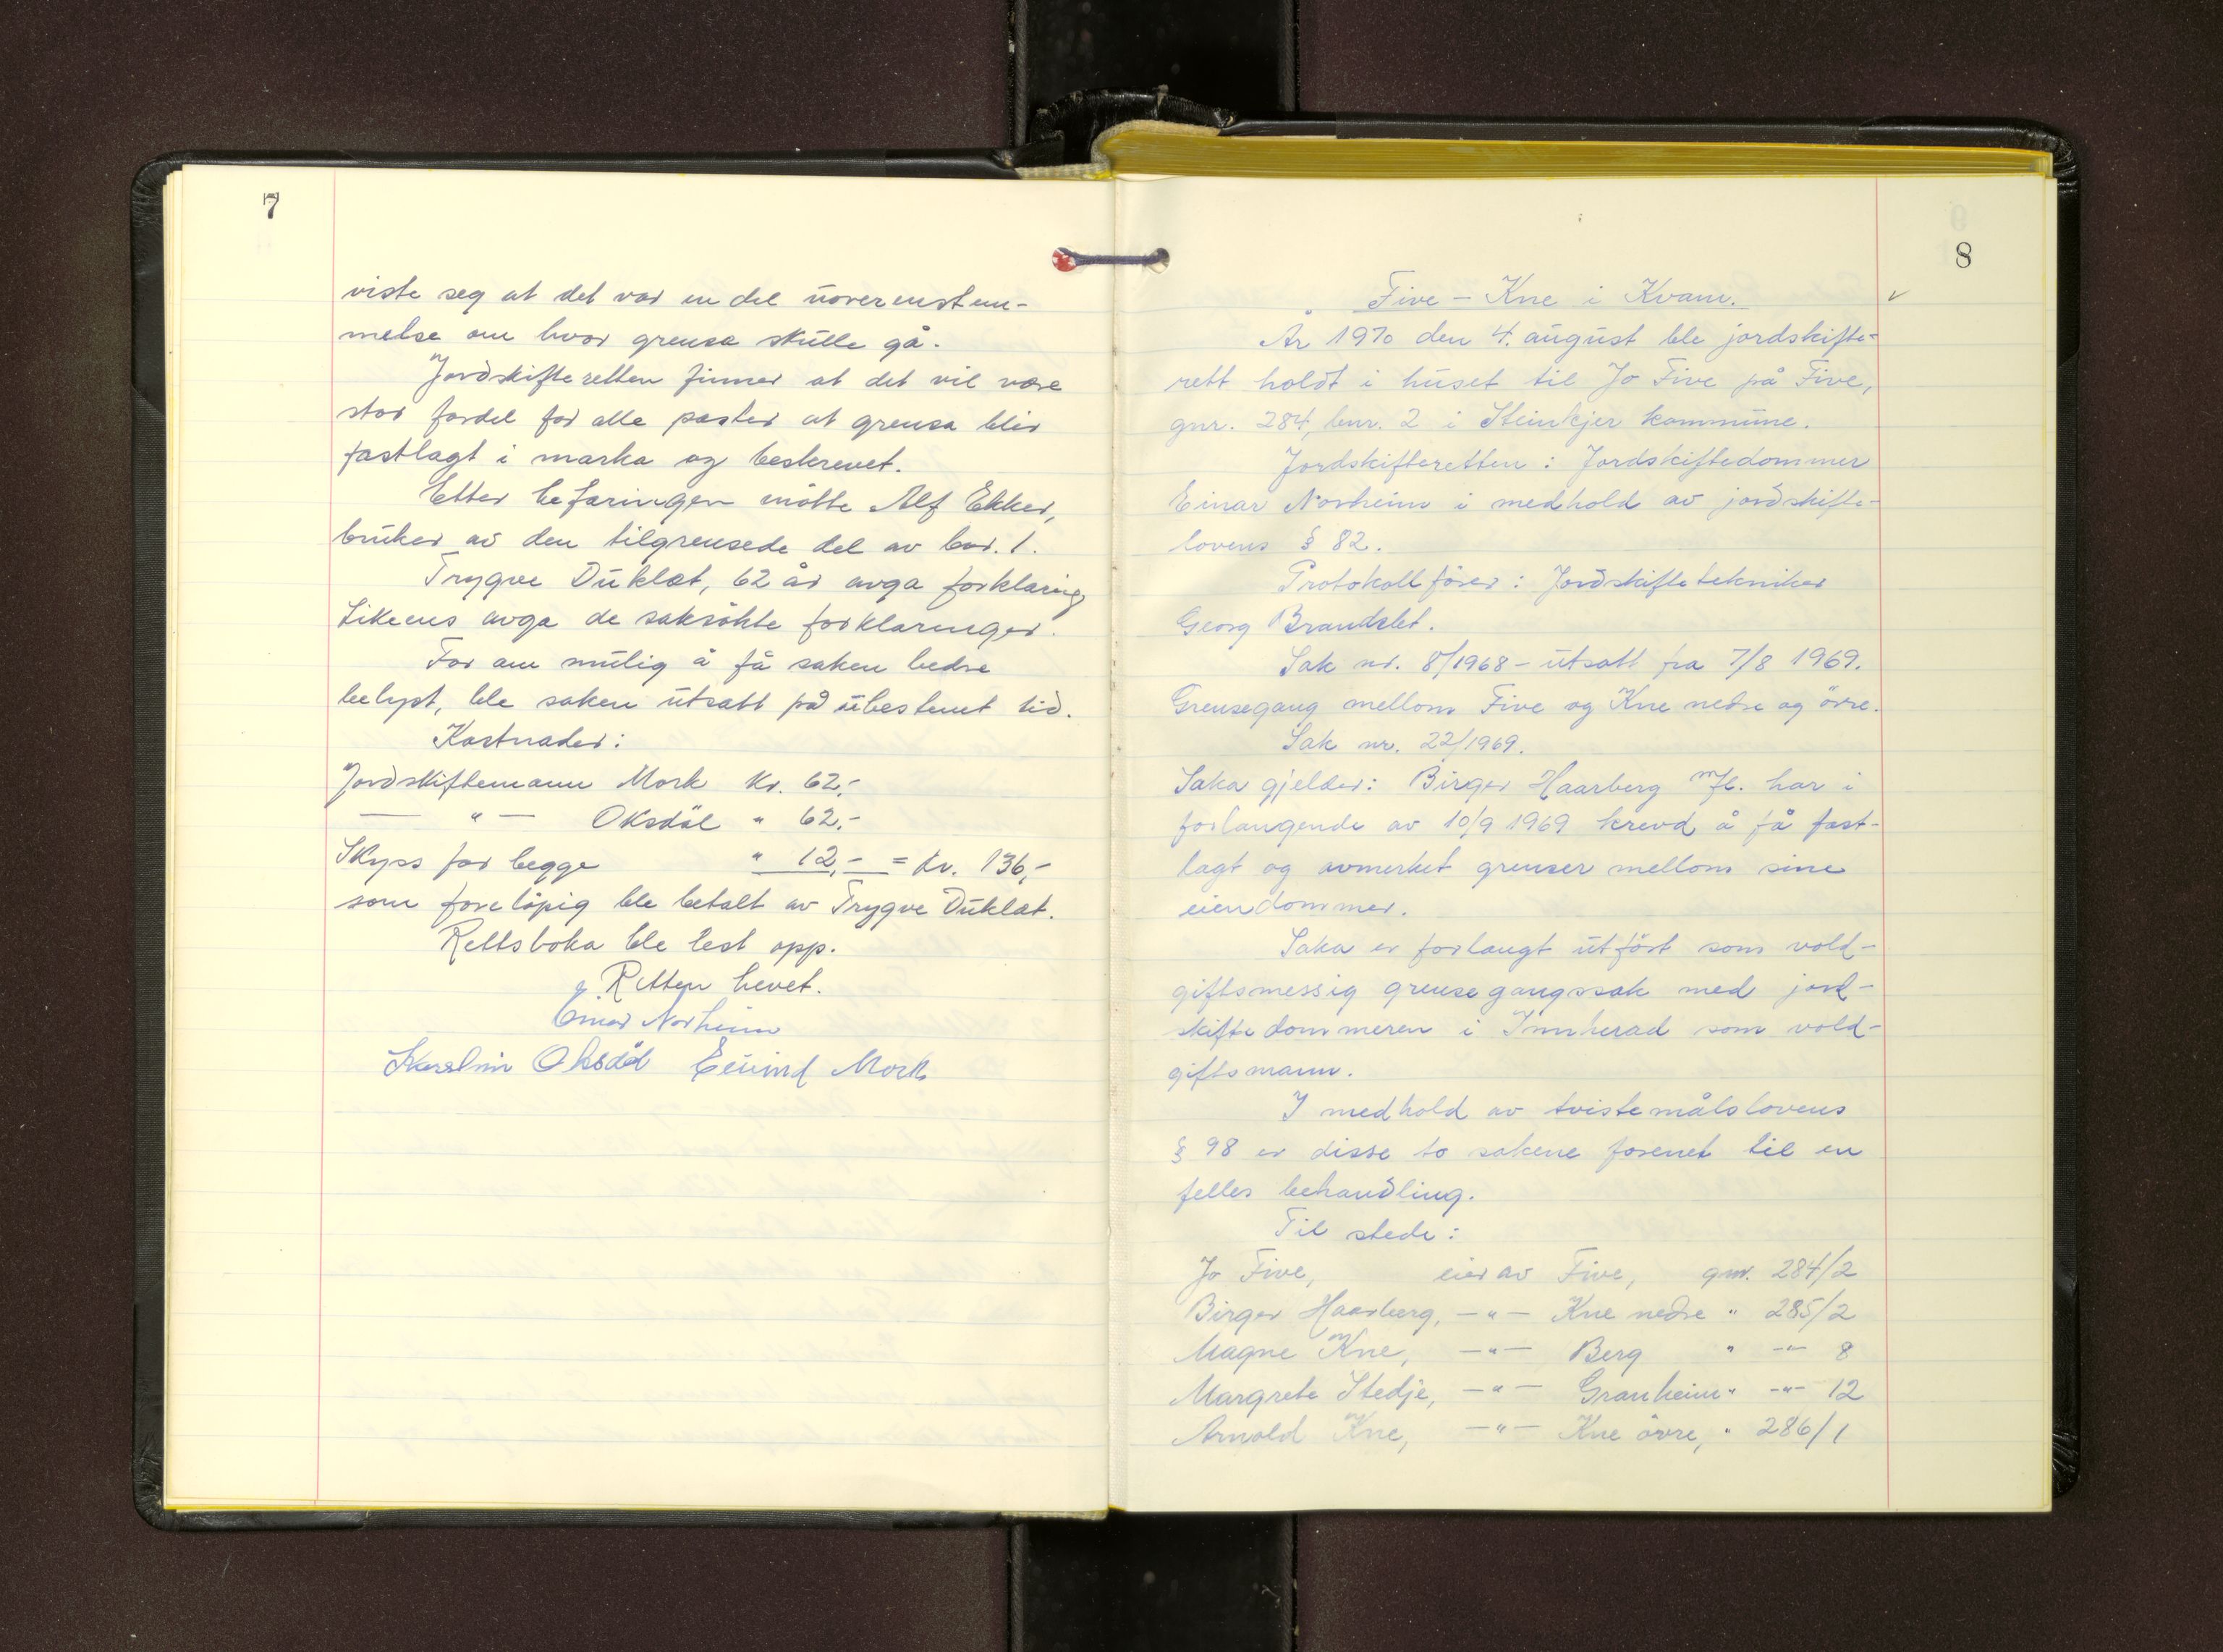 7
viste seg at det var en del uoverenstem-
melse om hvor grensa skulle gå.
Jordskifteretten finner at det vil være
stor fordel for alle parter at grensa blir
fastlagt i marka og beskrevet.
Etter befaringen møtte Alf Ekker,
bruker av den tilgrensede del av bnr. 1.
Trygve Duklæt, 62 år avga forklaring
Likeens avga de saksökte forklaringer.
For om mulig å få saken bedre
belyst, ble saken utsatt på ubestemt tid.
Kostnader:
Jordskiftemann Mork kr. 62,-
— " — Oksdöl " 62.-
Skyss for begge " 12,- = kr. 136,-
som forelöpig ble betalt av Trygve Duklæt.
Rettsboka ble lest opp.
Retten hevet.
Einar Norheim
Oksdöl Eivind Mork
8
Five - Kne i Kvam.
År 1970 den 4. august ble jordskifte-
rett holdt i huset til Jo Five på Five,
gnr. 284, bnr. 2 i Steinkjer kommune.
Jordskifteretten: Jordskiftedommer
Einar Norheim i medhold av jordskifte-
lovens § 82.
Protokollförer: Jordskiftetekniker
Georg Brandslet.
Sak nr. 8/1968 - utsatt fra 7/8 1969.
Grensegang mellom Five og Kne nedre og övre.
Sak nr. 22/1969.
Saka gjelder: Birger Haarberg mfl. har i
forlangende av 10/9 1969 krevd å få fast-
lagt og avmerket grenser mellom sine
eiendommer.
Saka er forlangt utfört som vold-
giftsmessig grensegangssak med jord-
skiftedommeren i Innherad som vold-
giftsmann.
I medhold av tvistemålslovens
§ 98 er disse to sakene forenet til en
felles behandling.
Til stede:
Jo Five, eier av Five, gnr. 284/2
Birger Haarberg, —"— Kne nedre " 285/2
Magne Kne, —"— Berg " —"— 8
Margrete Stedje, —"— Granheim " —"— 12
Arnold Kne, —"— Kne övre, " 286/1